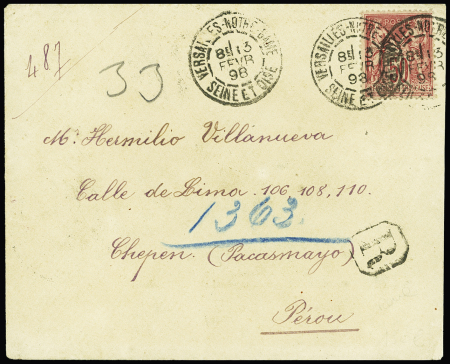 487
33
VERSAILLES-NOTRE-DAME
8E 13
FEVR
98
SEINE ET OISE
VERSAILLES-NOTRE-DAME
8E 13
FEVR
98
SEINE ET OISE
Mr. Hermilio Villanueva
Calle de Lima 106, 108, 110.
1363
Chepen (Pacasmayo)
R
Pérou